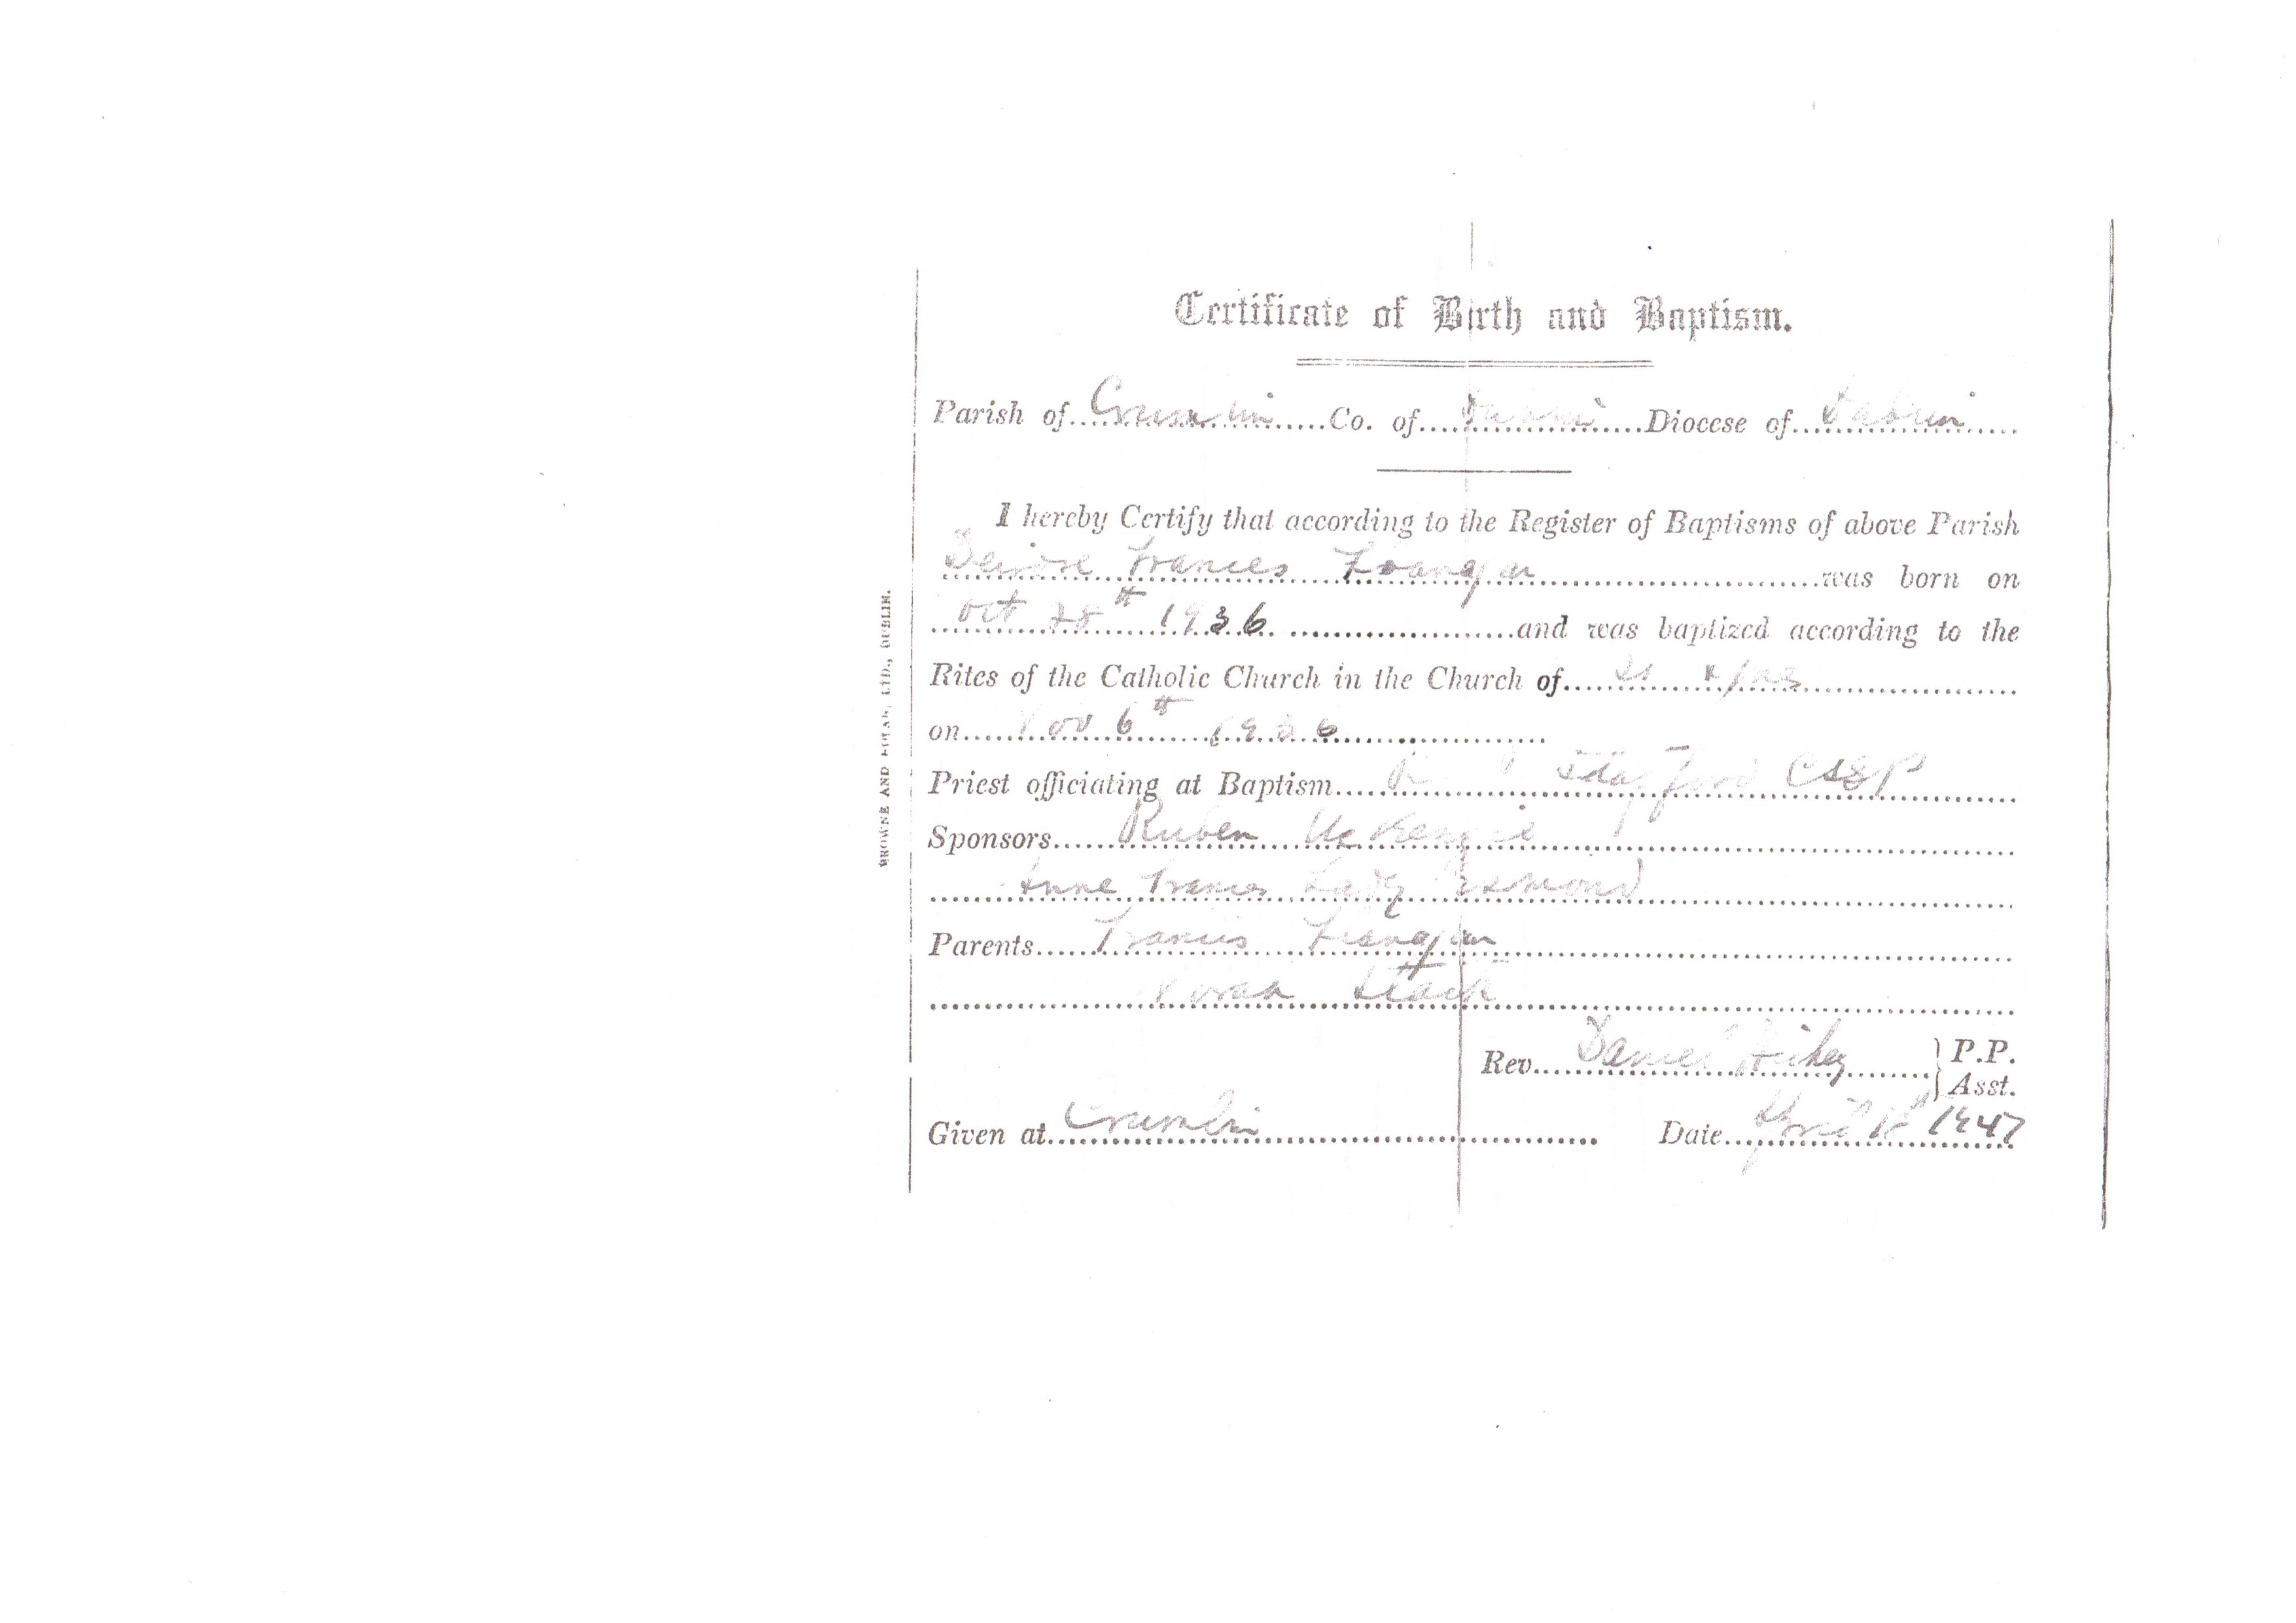 Certificate of Birth and Baptism.
Parish of Crumlin Co. of Dublin Diocese of Dublin
I hereby Certify that according to the Register of Baptisms of above Parish
Deirdre Frances Flanagan was born on
Oct 28th 1936 and was baptized according to the
Rites of the Catholic Church in the Church of St Agnes
on Nov 6th 1936
Priest officiating at Baptism Stafford CSSP
Sponsors Ruben McKenzie
Anne Frances Lady Esmond
Parents Francis Flanagan
Norah Stack
Rev. Daniel P.P.
Asst.
Given at Crumlin Date April 1947
BROWNE AND NOLAN, LTD., DUBLIN.